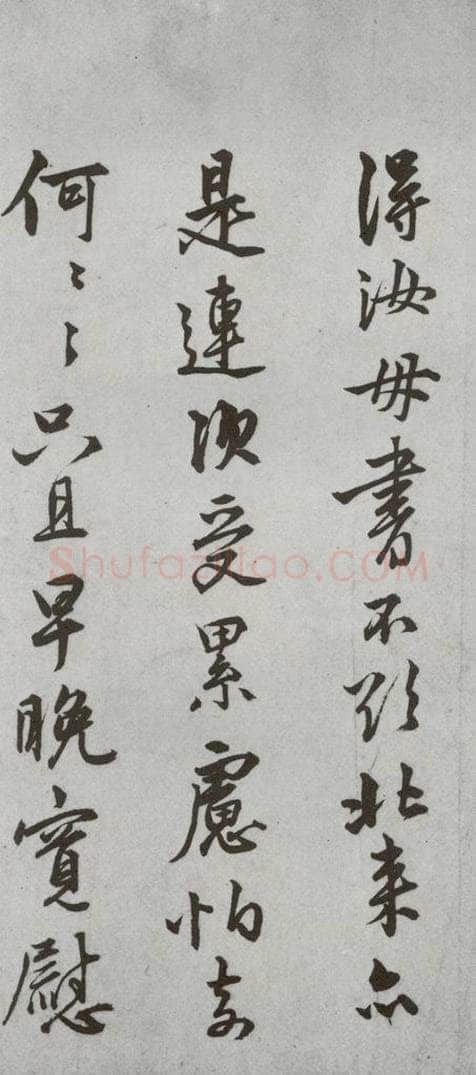 得汝母書不欲北来亦
是連次受累慮怕奈
何〻〻只且早晚寬慰
Shufaziliao.COM